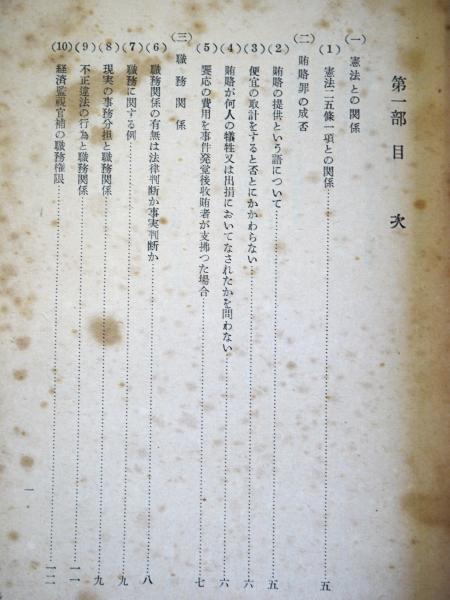 第一部 目次
(一) 憲法との関係
(1) 憲法二五條一項との関係……五
(二) 賄賂罪の成否
(2) 賄賂の提供という語について……五
(3) 便宜の取計をすると否とにかかわらない……六
(4) 賄賂が何人の犠牲又は出捐においてなされたかを問わない……六
(5) 饗応の費用を事件発覚後收賄者が支拂つた場合……七
(三) 職務関係
(6) 職務関係の有無は法律判断か事実判断か……八
(7) 職務に関する例……九
(8) 現実の事務分担と職務関係……九
(9) 不正違法の行為と職務関係……一一
(10) 経済監視官補の職務権限……一二
一